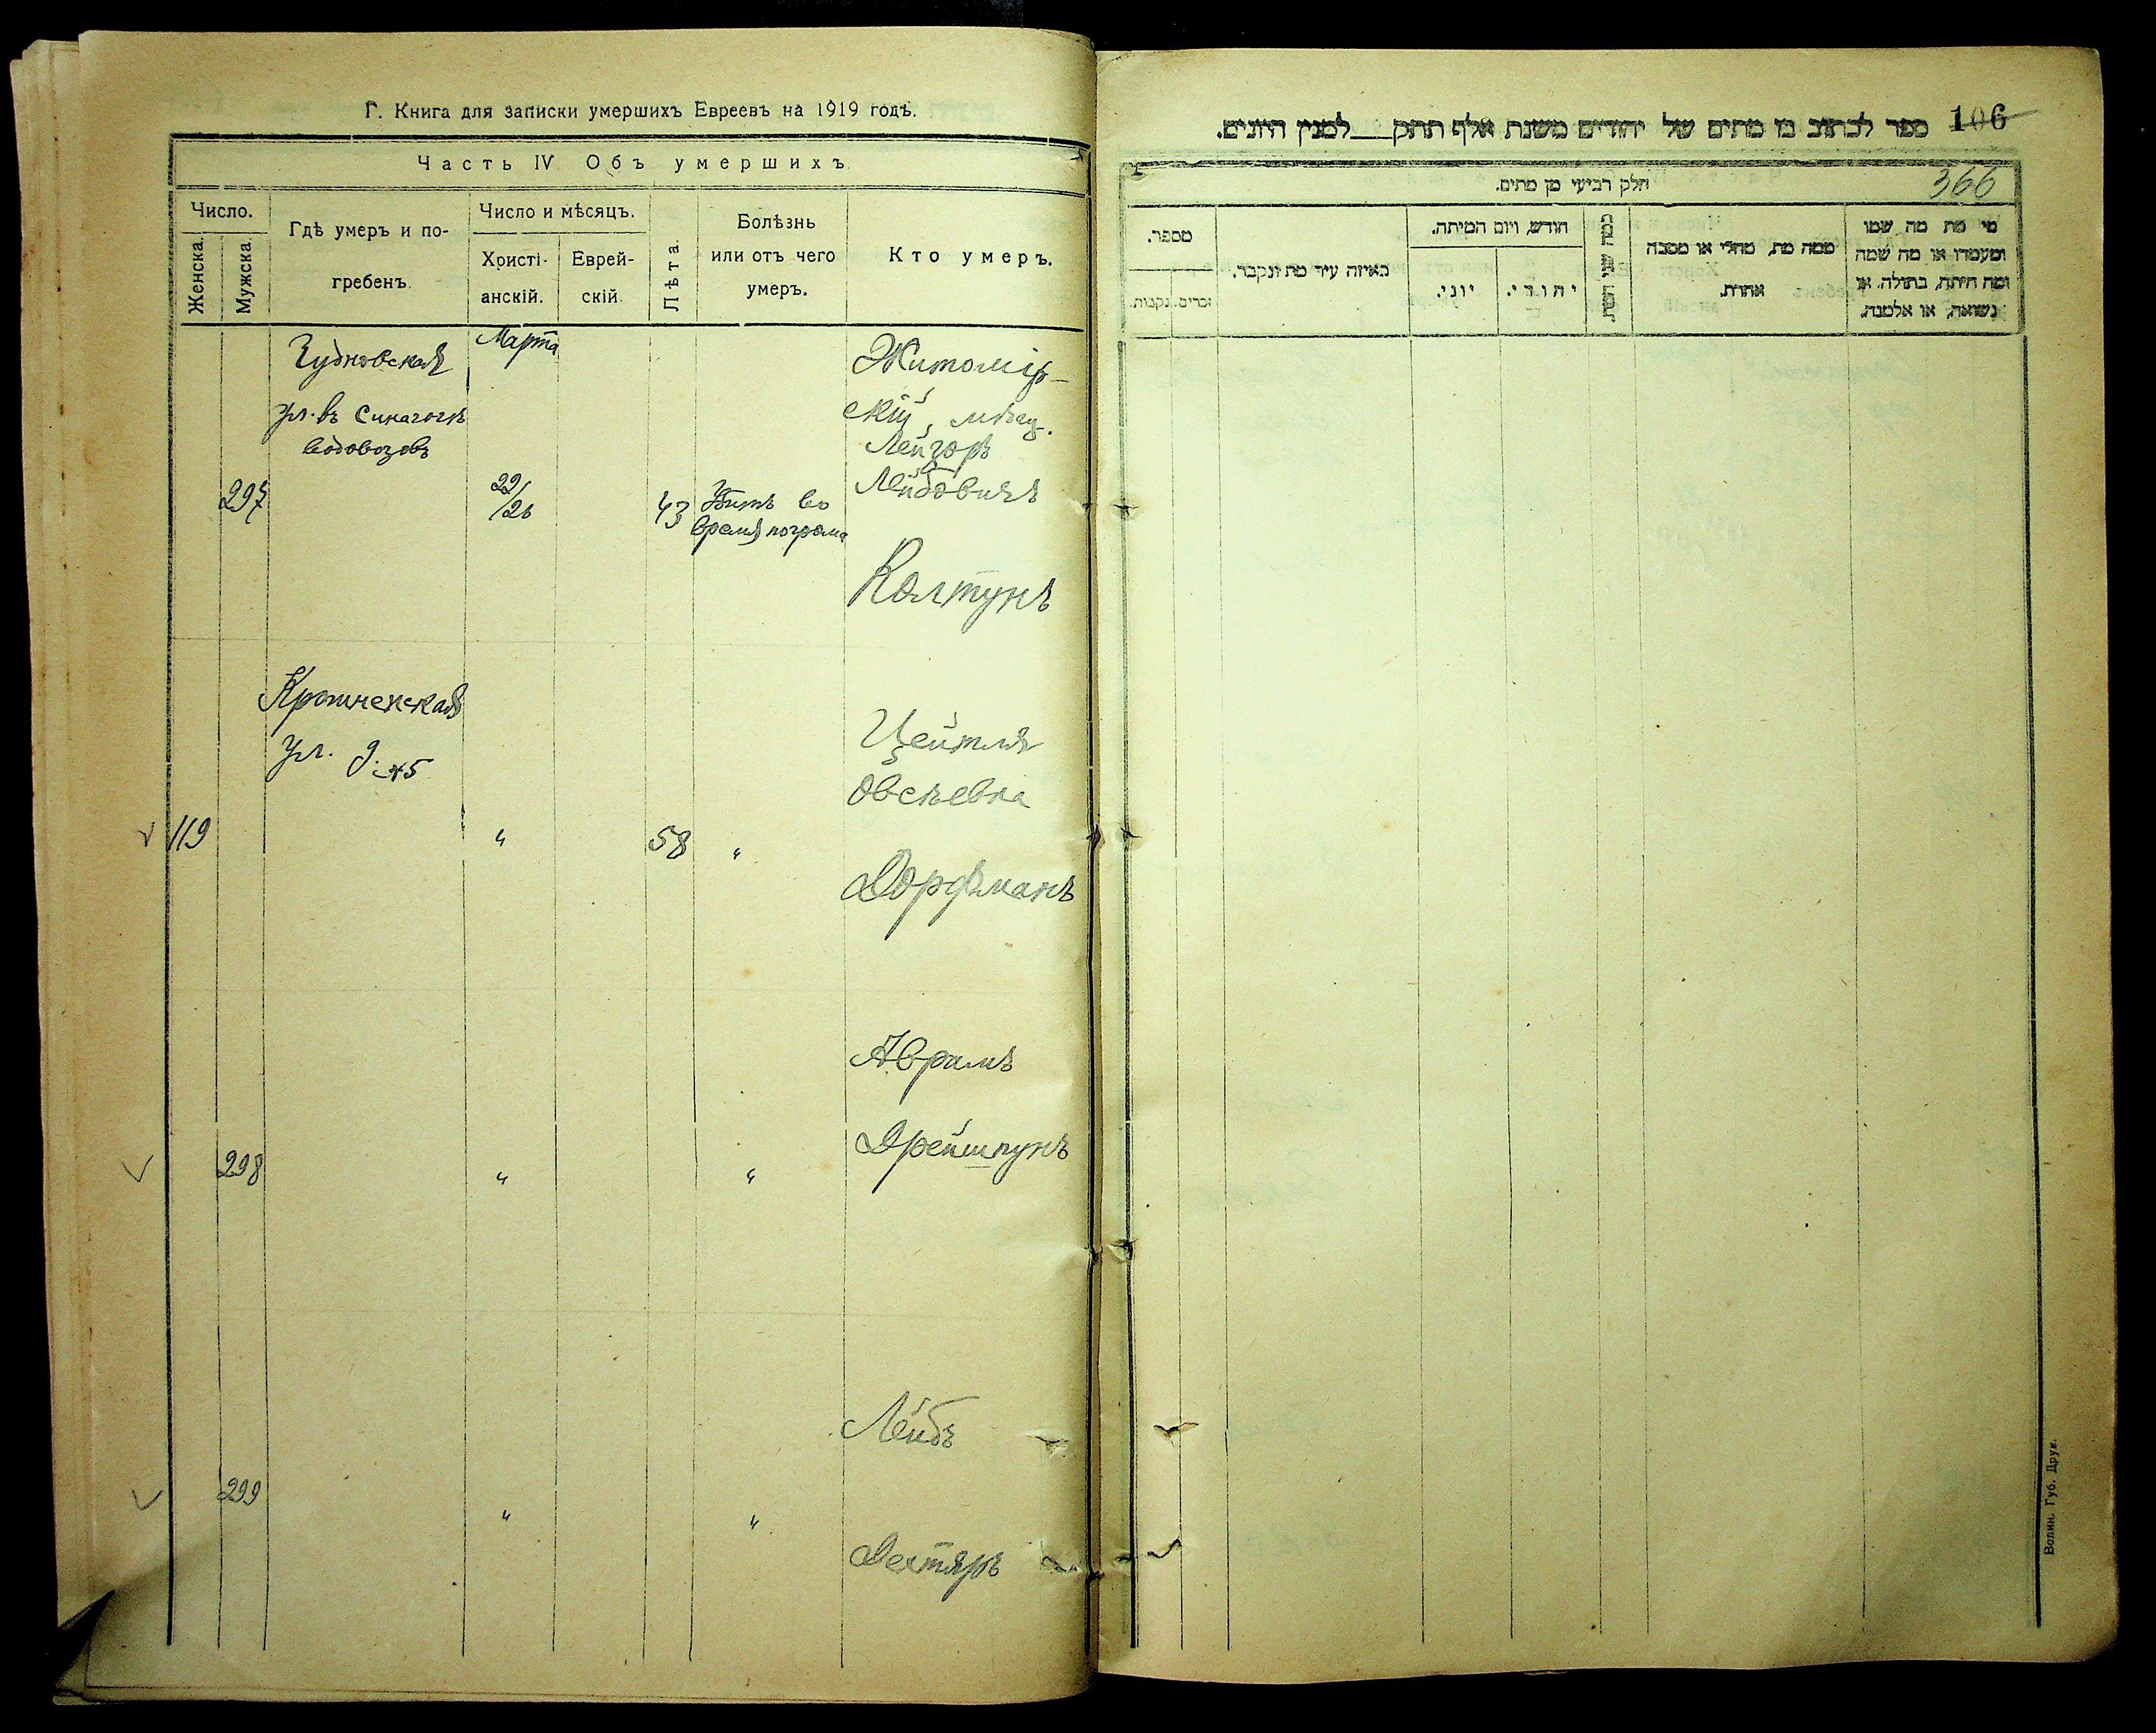 Г. Книга для записки умершихъ Евреевъ на 1919 годъ.
Часть IV Объ умершихъ.
Число.
Женска.
Мужска.
Гдѣ умеръ и по-
гребенъ.
Число и мѣсяцъ.
Христі-
анскій.
Еврей-
скій.
Лѣта.
Болѣзнь
или отъ чего
умеръ.
Кто умеръ.
297
Чудновская
ул. въ Синагогѣ
водовозовъ
Марта
22/26
43
Убитъ во
время погрома
Житомір-
скій мѣщ.
Лейзоръ
Лейбовичъ
Колтунъ
119
Крошенская
ул. д. №5
"
58
"
Цейтля
Овсѣевна
Дорфманъ
298
"
"
Аврамъ
Дрейшпунъ
299
"
"
Лейбъ
Дехтяръ
ספר לכתוב בו מתים של יהודים משנת אלף תתק__למנין היונים.
106
366
חלק רביעי מן מתים.
מספר.
זכרים.
נקבות.
באיזה עיר מת ונקבר.
חודש, ויום המיתה.
יוני.
יהודי.
ממה מת, מחלי או מסבה
אחרת.
מי מת מה שמו
ומעמדו או מה שמה
ומה היתה, בתולה, או
נשואה, או אלמנה.
Волин. Губ. Друк.